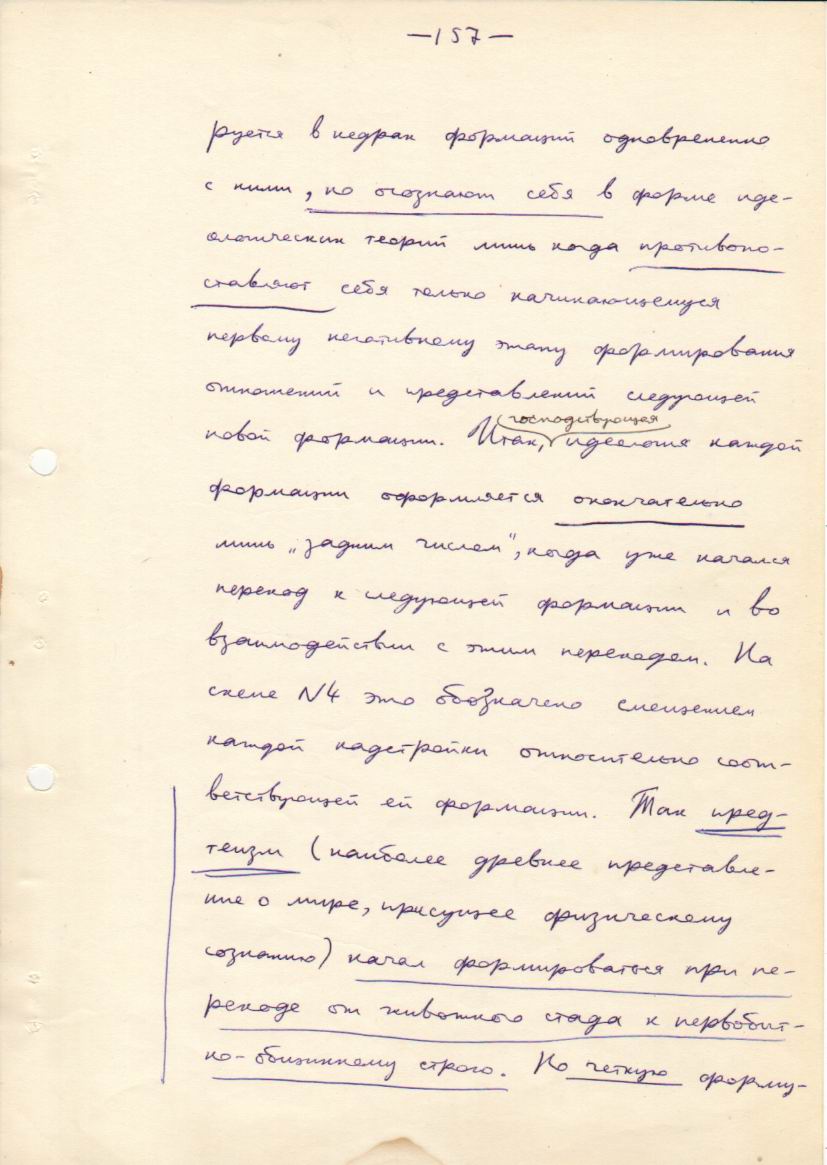 —157—
руется в недрах формаций одновременно
с ними, но осознают себя в форме иде-
ологических теорий лишь когда противопо-
ставляют себя только начинающемуся
первому негативному этапу формирования
отношений и представлений следующей
господствующая
новой формации. Итак, идеология каждой
формации оформляется окончательно
лишь „задним числом", когда уже начался
переход к следующей формации и во
взаимодействии с этим переходом. На
схеме №4 это обозначено смещением
каждой надстройки относительно соот-
ветствующей ей формации. Так пред-
теизм (наиболее древнее представле-
ние о мире, присущее физическому
сознанию) начал формироваться при пе-
реходе от животного стада к первобит-
но-общинному строю. Но четкую форму-